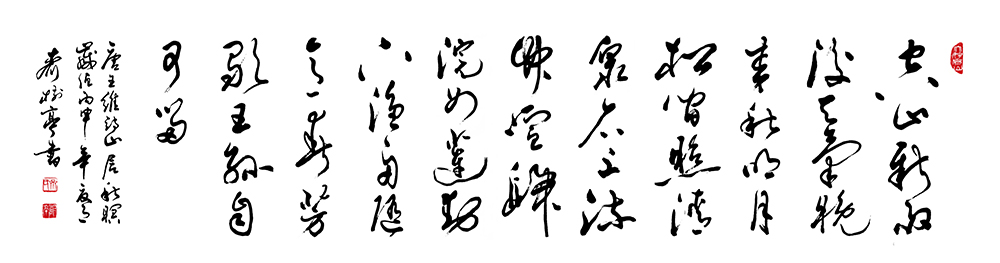 空山新雨
後天氣晚
來秋明月
松間照清
泉石上流
竹喧歸
浣女蓮動
下漁舟隨
意春芳
歇王孫自
可留
唐王維詩山居秋暝
歲值丙申年夏月
樹亭書